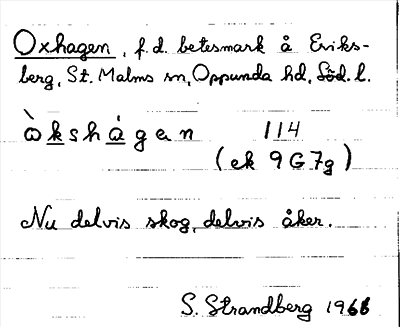 Oxhagen, f.d. betesmark å Eriks-
berg, St. Malms sn, Oppunda hd, Söd. l.
òkshágen 114
(ek 9G7g)
Nu delvis skog, delvis åker.
S. Strandberg 1966